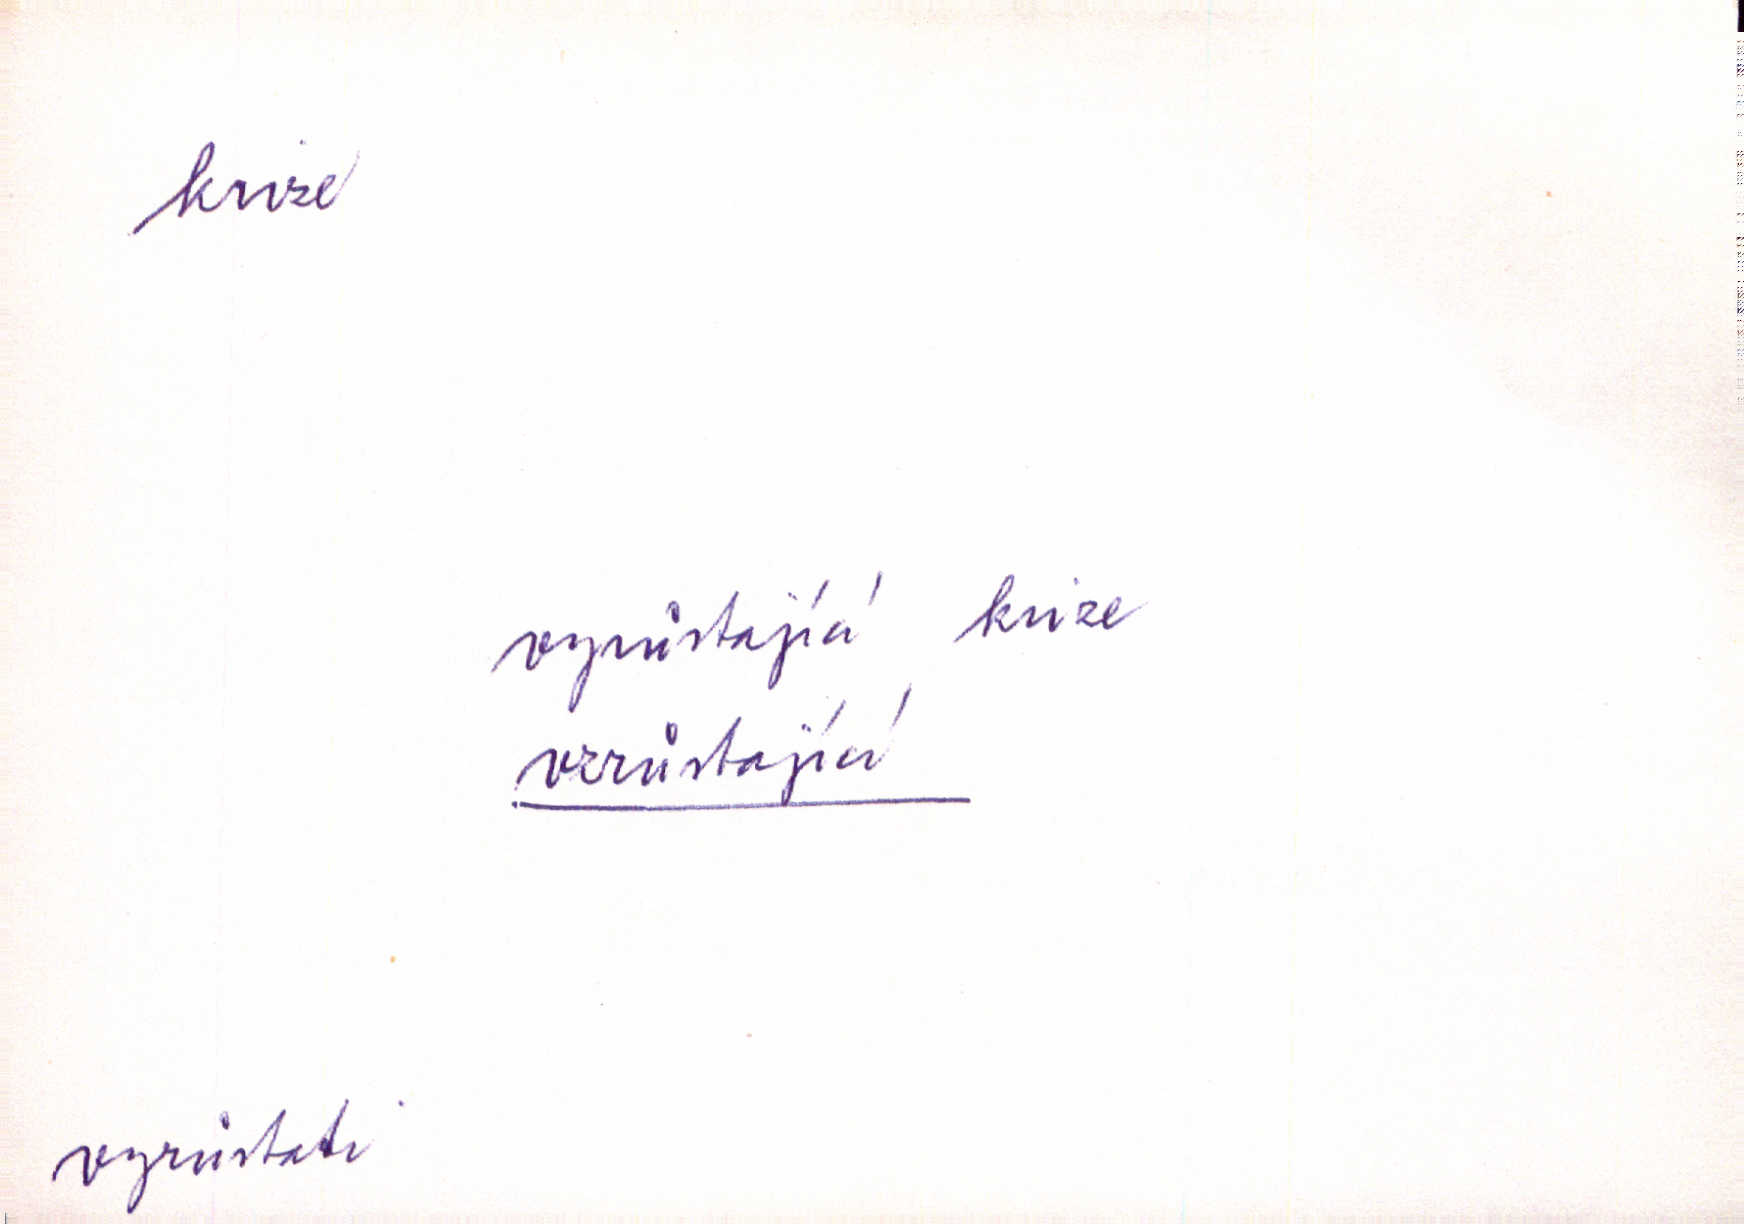 krize
vyrůstající krize
vzrůstající
vyrůstati